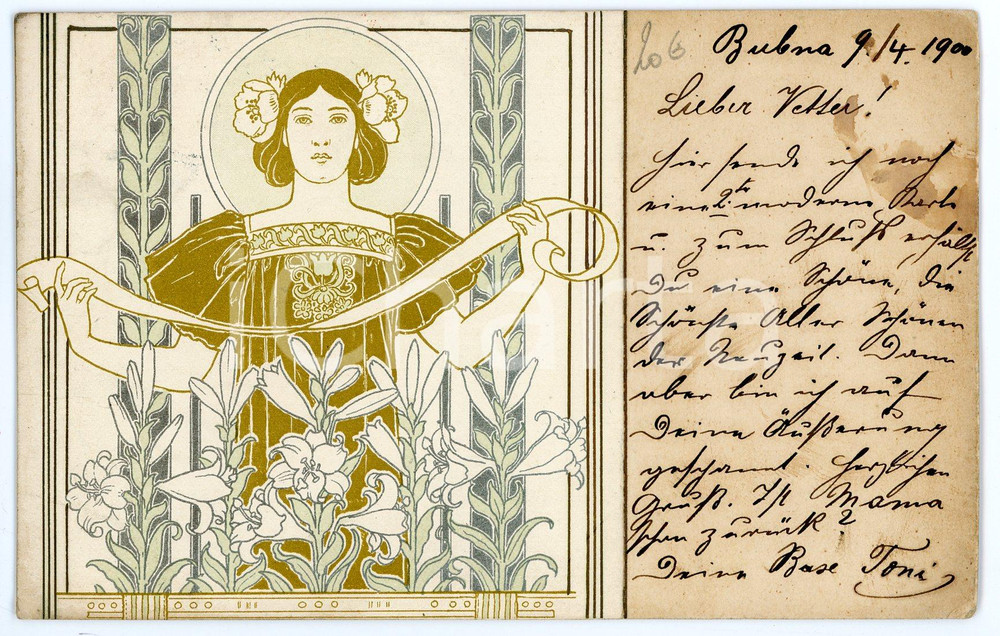 206
Bubna 9./4. 1900
Lieber Vetter!
Hier sende ich noch
eine 2te moderne Karte
u. zum Schluß erhälst
Du eine Schöne, die
Schönste Aller Schönen
der Neuzeit. Dann
aber bin ich auf
Deine Äußerung
gespannt. Herzlichen
Gruß. Ist Mama
schon zurück?
Deine Base Toni